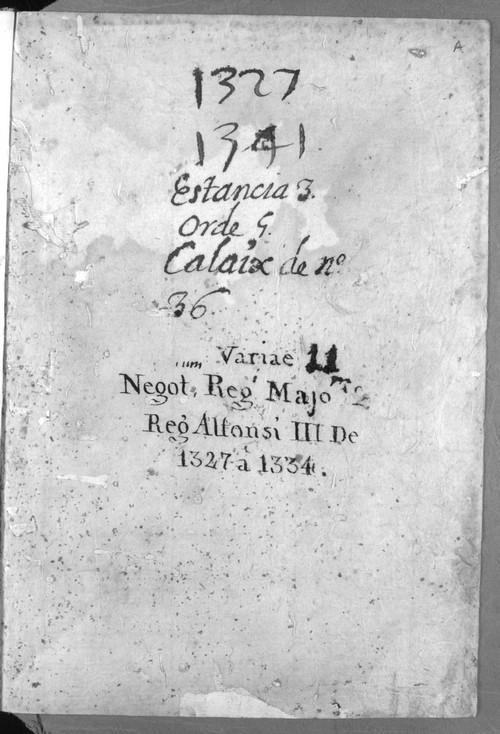 A
1327
1341
Estancia 3.
Orde G.
Calaix de nº
36
Variae 11
Negot. Reg. Majo
Reg Alfonsi III De
1327 a 1334.